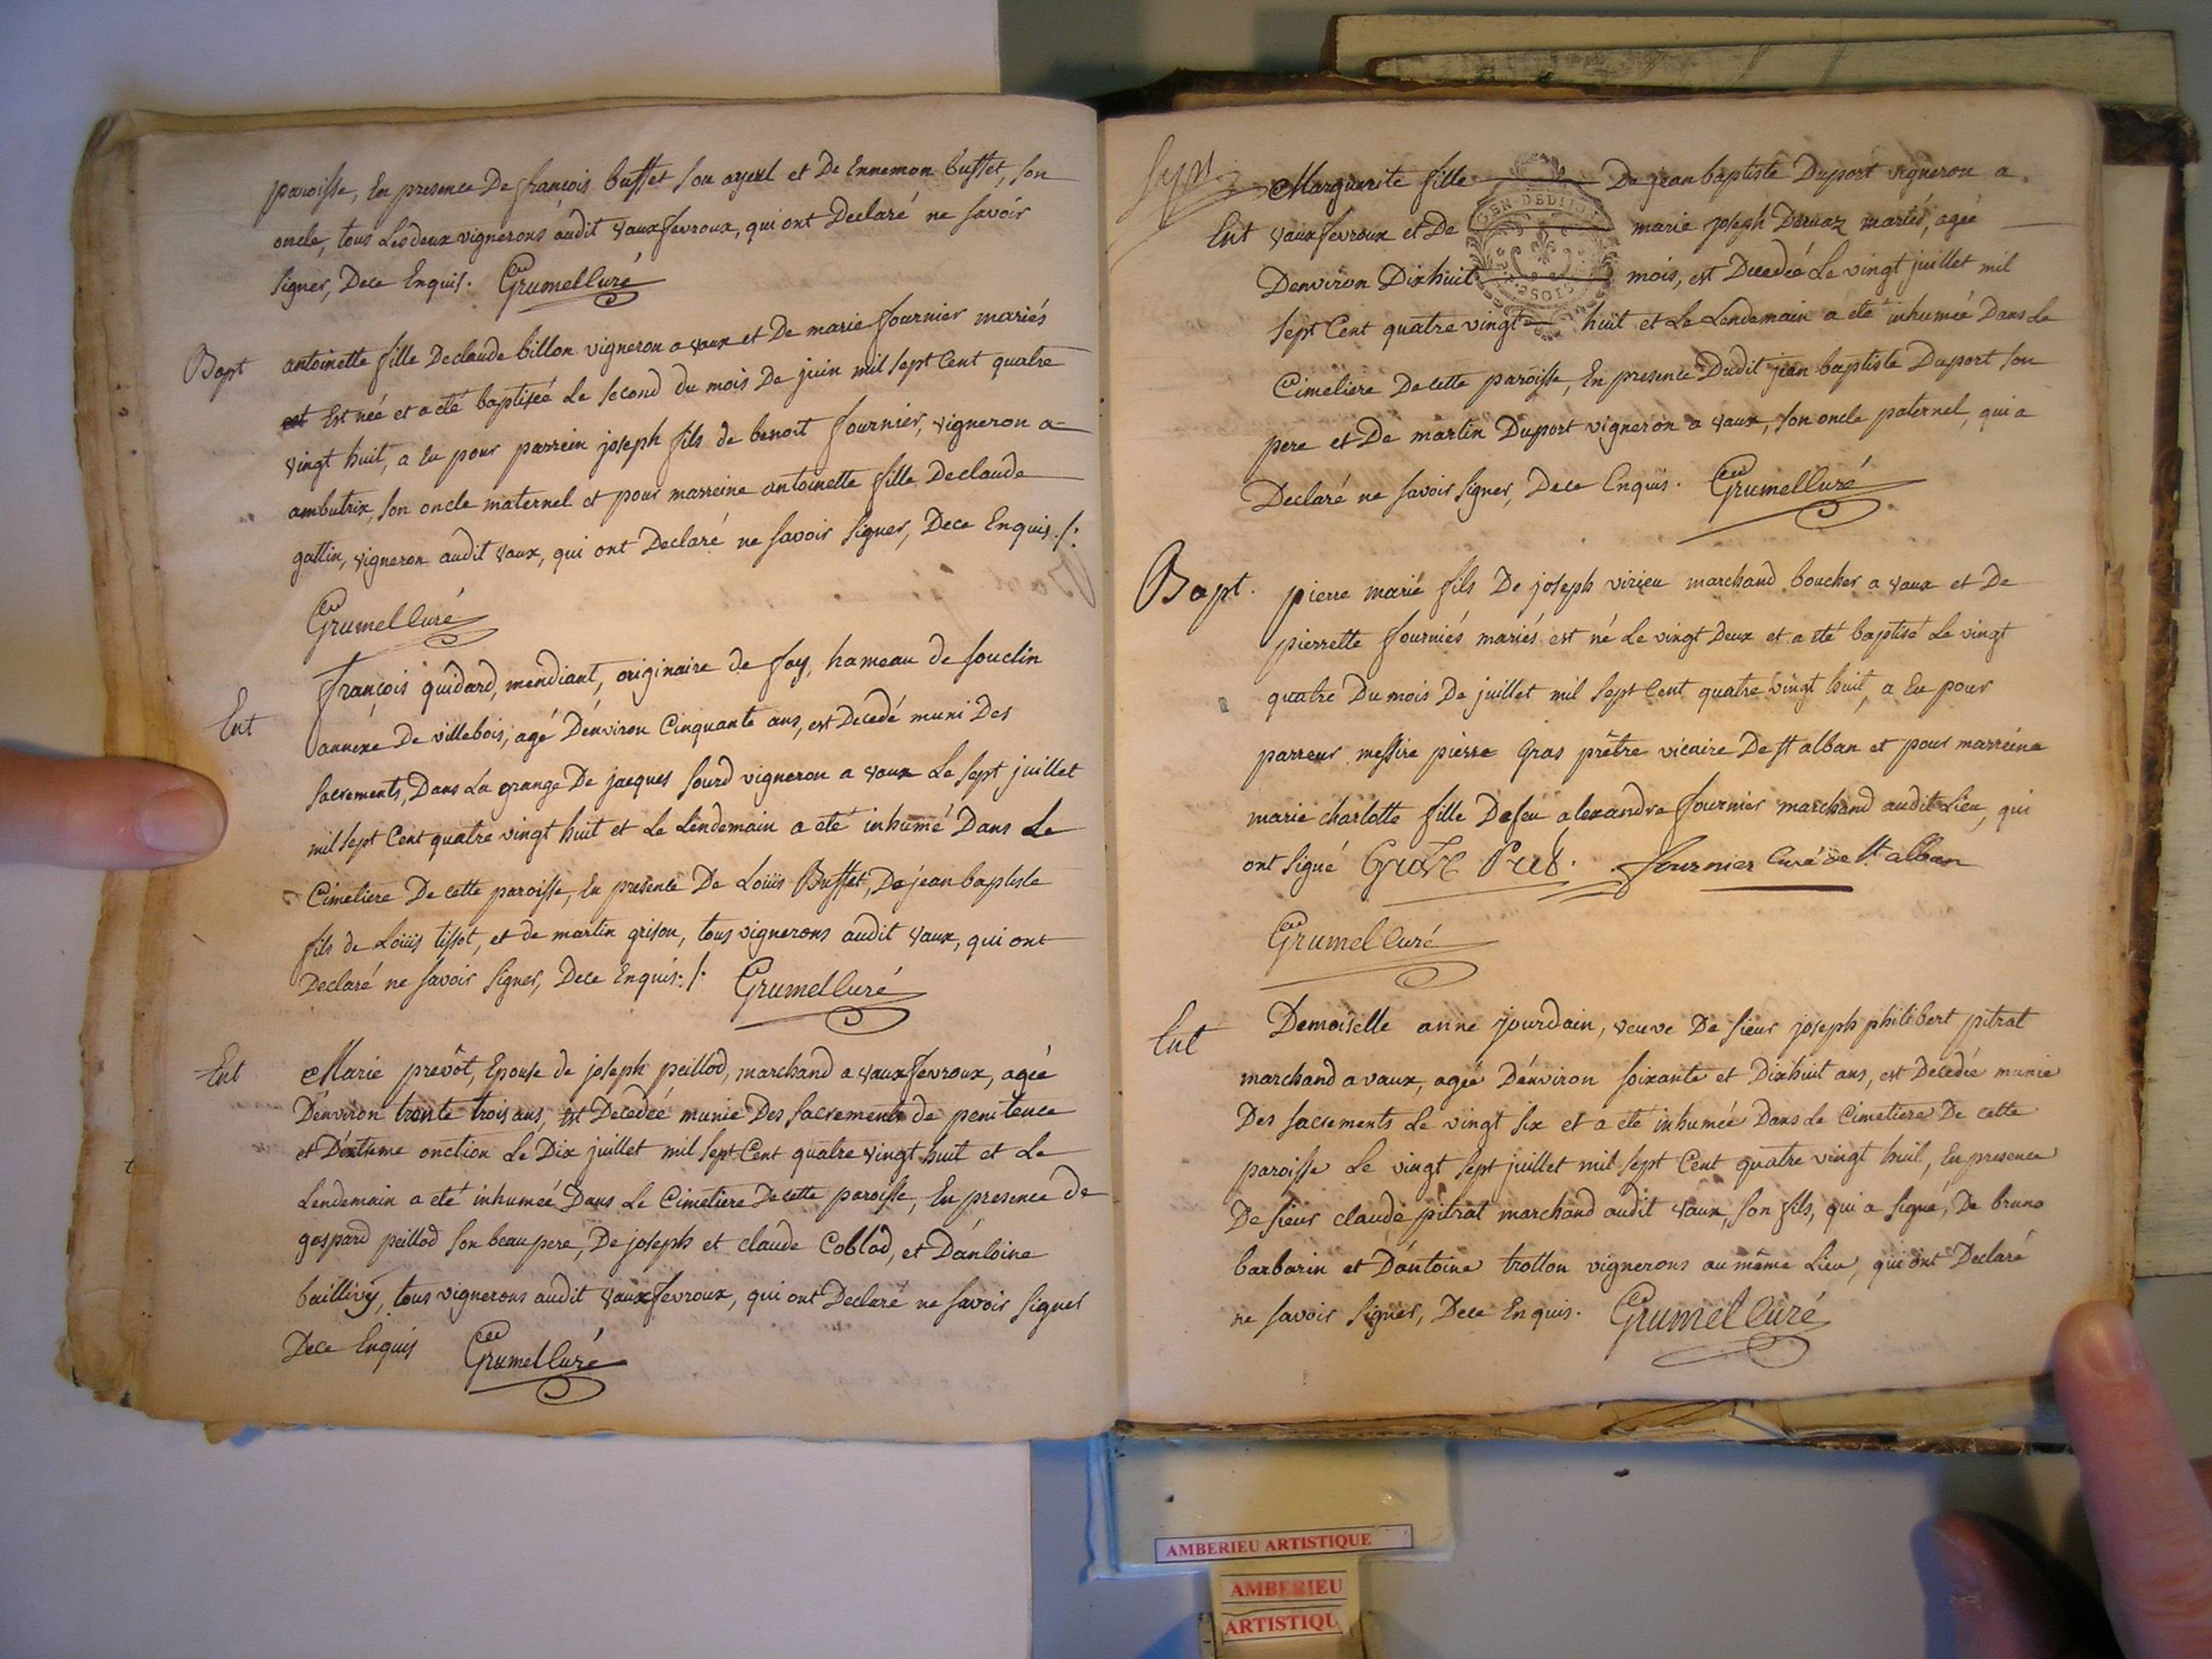 paroisse, En presence De françois buffet son ayeul et De Ennemon buffet, son
oncle, tous Les deux vignerons audit vauxfevroux, qui ont Declaré ne savoir
signer, Dece Enquis. Grumel Curé
Bapt antoinette fille Declaude billon vigneron a vaux et De marie fournier mariés
est Est née et a eté baptiseé Le second du mois De juin mil sept Cent quatre
vingt huit, a Eu pour parrein joseph fils de benoit fournier, vigneron a
ambutrix, son oncle maternel et pour marreine antoinette fille Declaude
gattin, vigneron audit vaux, qui ont Declaré ne savoir signer, Dece Enquis./.
Grumel Curé
Ent françois guidard, mendiant, originaire de soy, hameau de souclin
annexe De villebois, agé D'environ Cinquante ans, est Decedé muni Des
sacrements, Dans La grange De jacques sourd vigneron a vaux Le sept juillet
mil sept Cent quatre vingt huit et Le Lendemain a eté inhumé Dans Le
Cimetiere De cette paroisse, En presence De Loüis Buffet, De jean baptiste
fils de Loüis tissot, et de martin grison, tous vignerons audit vaux, qui ont
Declaré ne savoir signer, Dece Enquis:/. Grumel Curé
Ent Marie prevôt, Epouse de joseph peillod, marchand a vauxfevroux, ageé
D'environ trente trois ans, Est Decedeé munie Des sacrements de penitence
et D'extreme onction Le Dix juillet mil sept Cent quatre vingt huit et Le
Lendemain a eté inhumeé Dans Le Cimetiere De cette paroisse, En presence de
gaspard peillod son beau pere, De joseph et claude Coblod, et D'antoine
baillivÿ, tous vignerons audit vauxfevroux, qui ont Declaré ne savoir signer
Dece Enquis Grumel Curé
Marguerite fille De jean baptiste Duport vigneron a
Ent vauxfevroux et De marie joseph Dervaz mariés, ageé
Denviron Dixhuit mois, est Decedeé Le vingt juillet mil
sept Cent quatre vingt huit et Le Lendemain a eté inhumeé Dans Le
Cimetiere De cette paroisse, En presence Dudit jean baptiste Duport son
pere et De martin Duport vigneron a vaux, son oncle paternel, qui a
Declaré ne savoir signer, Dece Enquis. Grumel Curé
Bapt. pierre marie fils De joseph virieu marchand boucher a vaux et De
pierrette fourniés mariés est né Le vingt Deux et a eté baptisé Le vingt
quatre Du mois De juillet mil sept Cent quatre vingt huit, a Eu pour
parrein messire pierre Gras prêtre vicaire De st alban et pour marreine
marie charlotte fille Defeu alexandre fournier marchand audit Lieu, qui
ont signé fournier Curé de st alban
Grumel Curé
Ent Demoiselle anne jourdain, veuve De sieur joseph philibert pitrat
marchand a vaux, ageé D'environ soixante et Dixhuit ans, est Decedée munie
Des sacrements Le vingt six et a eté inhumée Dans Le Cimetiere De cette
paroisse Le vingt sept juillet mil sept Cent quatre vingt huit, En presence
De sieur claude pitrat marchand audit vaux, son fils, qui a signé, De bruno
barbarin et D'antoine trollon vignerons au même Lieu, qui ont Declaré
ne savoir signer, Dece Enquis. Grumel Curé
AMBERIEU ARTISTIQUE
AMBERIEU
ARTISTIQU